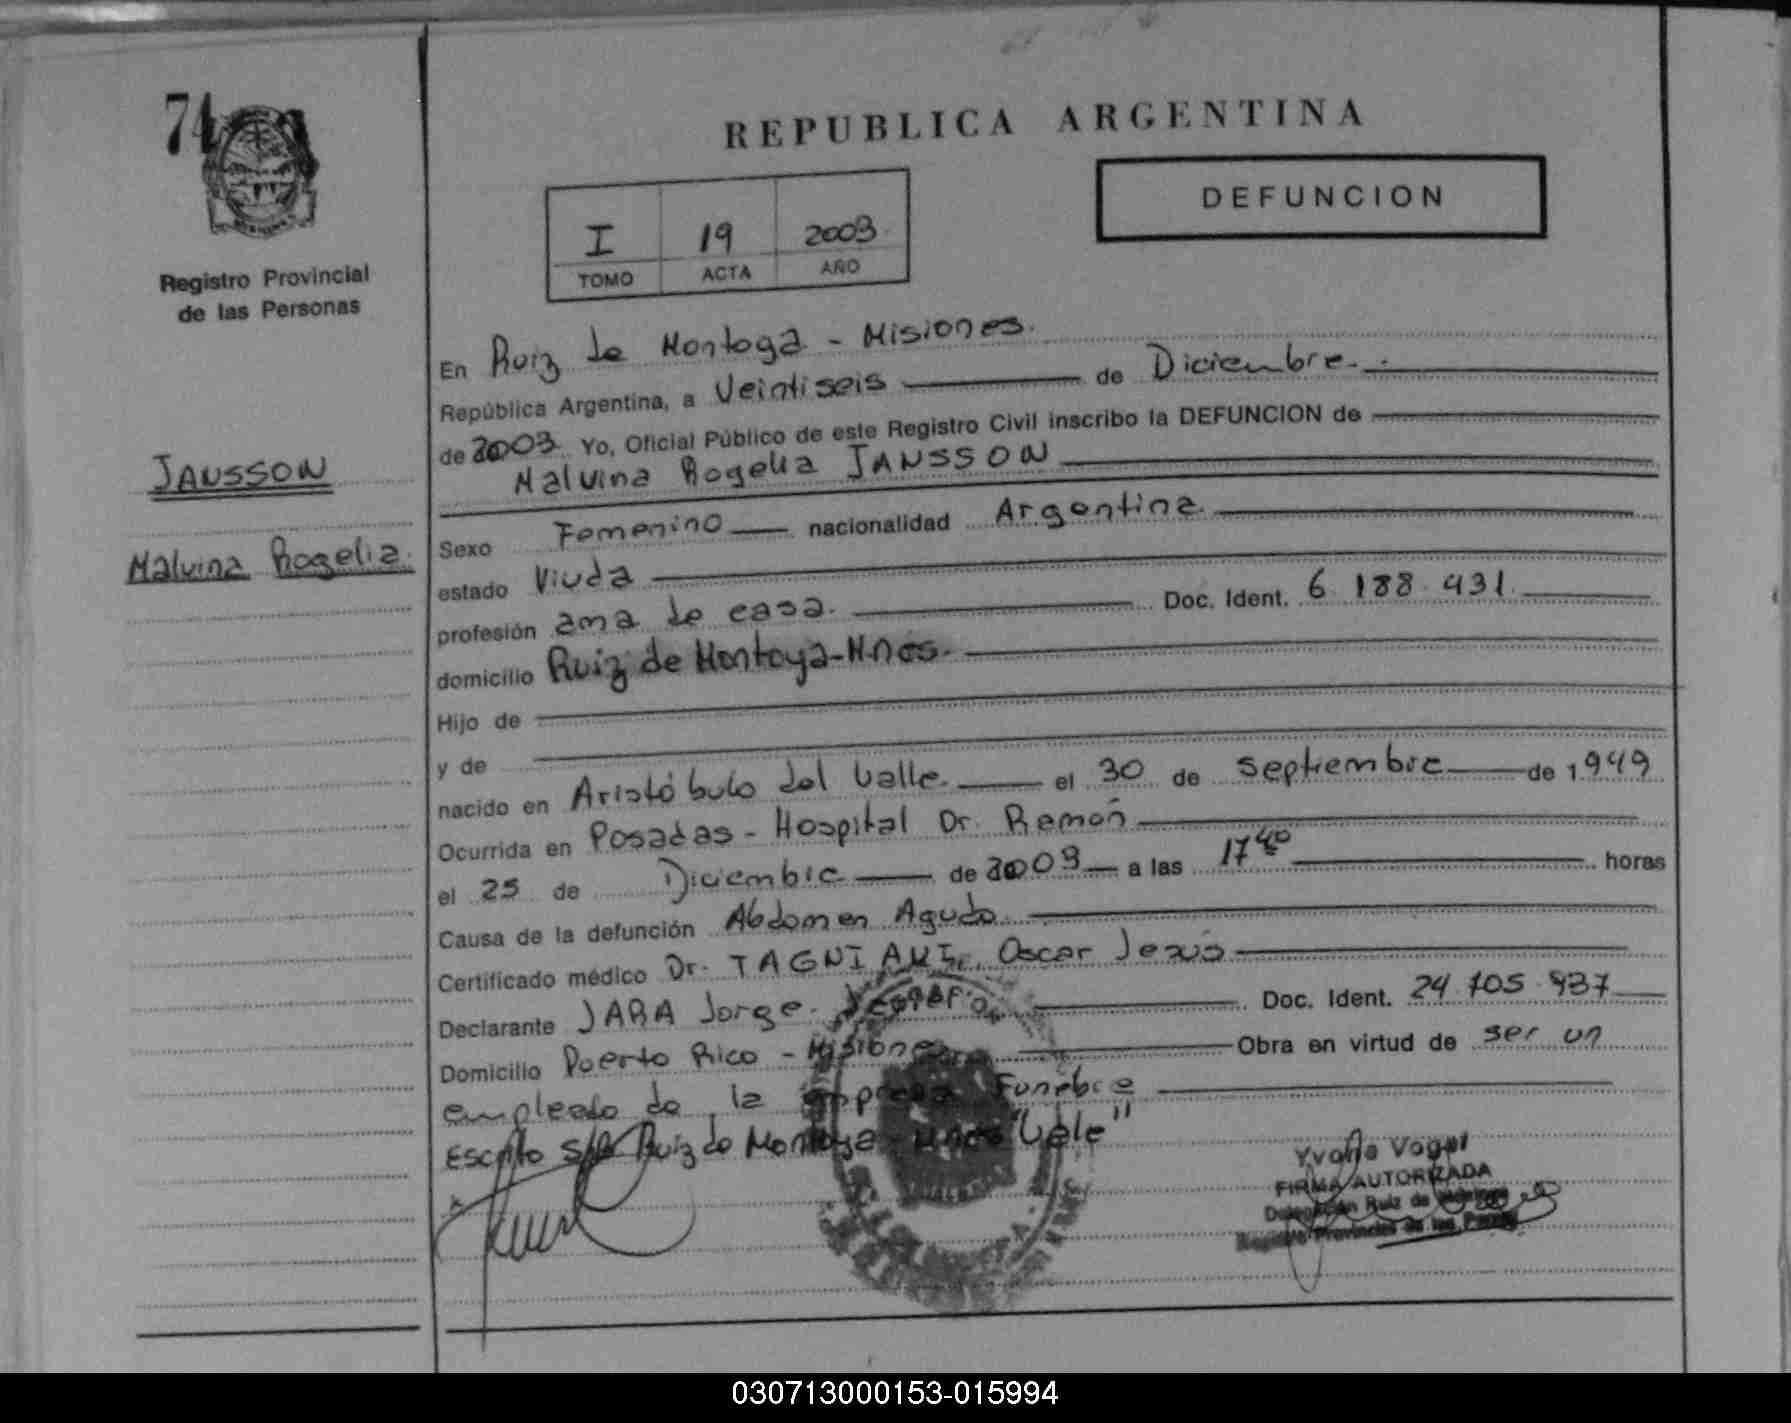 74
REPUBLICA ARGENTINA
DEFUNCION
I 19 2003
TOMO ACTA AÑO
Registro Provincial
de las Personas
JANSSON
Malvina Rogelia.
En Ruiz de Montoya - Misiones.
República Argentina, a Veintiseis de Diciembre.
de 2003 Yo, Oficial Público de este Registro Civil inscribo la DEFUNCION de
Malvina Rogelia JANSSON
Sexo Femenino nacionalidad Argentina
estado Viuda
profesión ama de casa. Doc. Ident. 6.188.431.
domicilio Ruiz de Montoya-Mnes.
Hijo de
y de
nacido en Aristóbulo del Valle. el 30 de septiembre de 1949
Ocurrida en Posadas - Hospital Dr. Ramón
el 25 de Diciembre de 2003 a las 17 40 horas
Causa de la defunción Abdomen Agudo
Certificado médico Dr. Oscar Jesús
Declarante JARA Jorge. Doc. Ident. 24.705.937
Domicilio Puerto Rico - Misiones Obra en virtud de ser un
empleado de la empresa Funebre
Escrito s/R Ruiz de Montoya - Mnes "Vale"
Yvonne Vogel
FIRMA AUTORIZADA
Delegación Ruiz de Montoya
Registro Provincial de las Personas
030713000153-015994